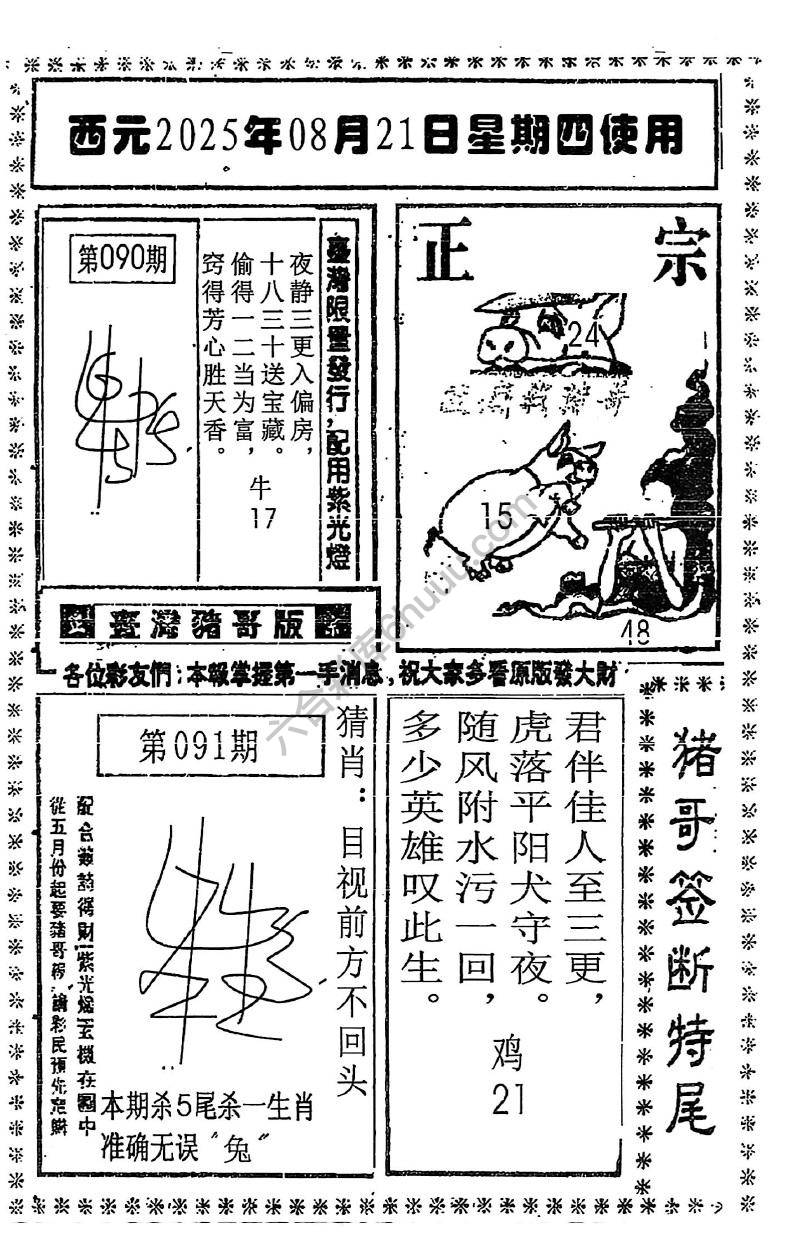 西元2025年08月21日星期四使用
第090期
臺灣限量發行,配用紫光燈
夜静三更入偏房，
十八三十送宝藏。
偷得一二当为富，
窍得芳心胜天香。
牛
17
正 宗
24
15
48
臺灣豬哥版
各位彩友們:本報掌握第一手消息,祝大家多看原版發大財
第091期
猜肖：目视前方不回头
從五月份起要豬哥
本期杀5尾杀一生肖
准确无误“兔”
君伴佳人至三更，
虎落平阳犬守夜。
随风附水污一回，
多少英雄叹此生。
鸡
21
猪哥签断特尾
六合彩库6huuu.com